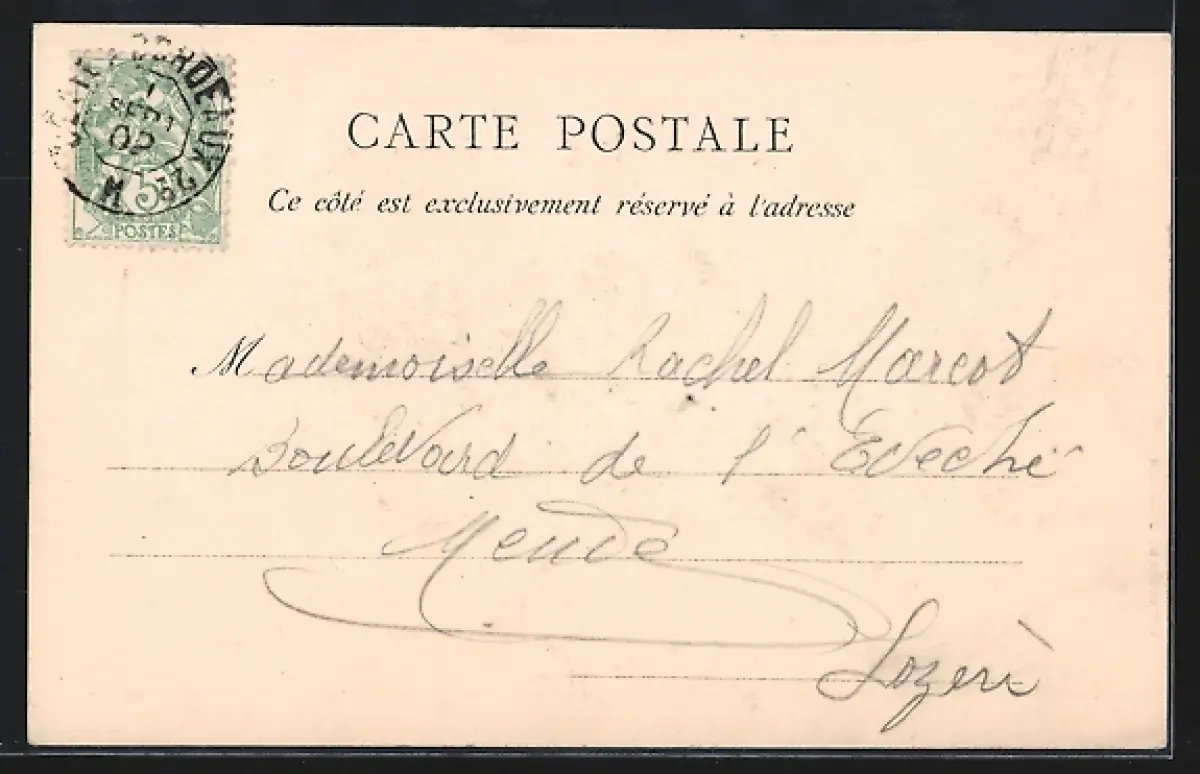 BORDEAUX
1
SEPT
02
5
POSTES
CARTE POSTALE
Ce côté est exclusivement réservé à l'adresse
Mademoiselle Rachel Marcot
Boulevard de l'Evèché
Mende
Lozère